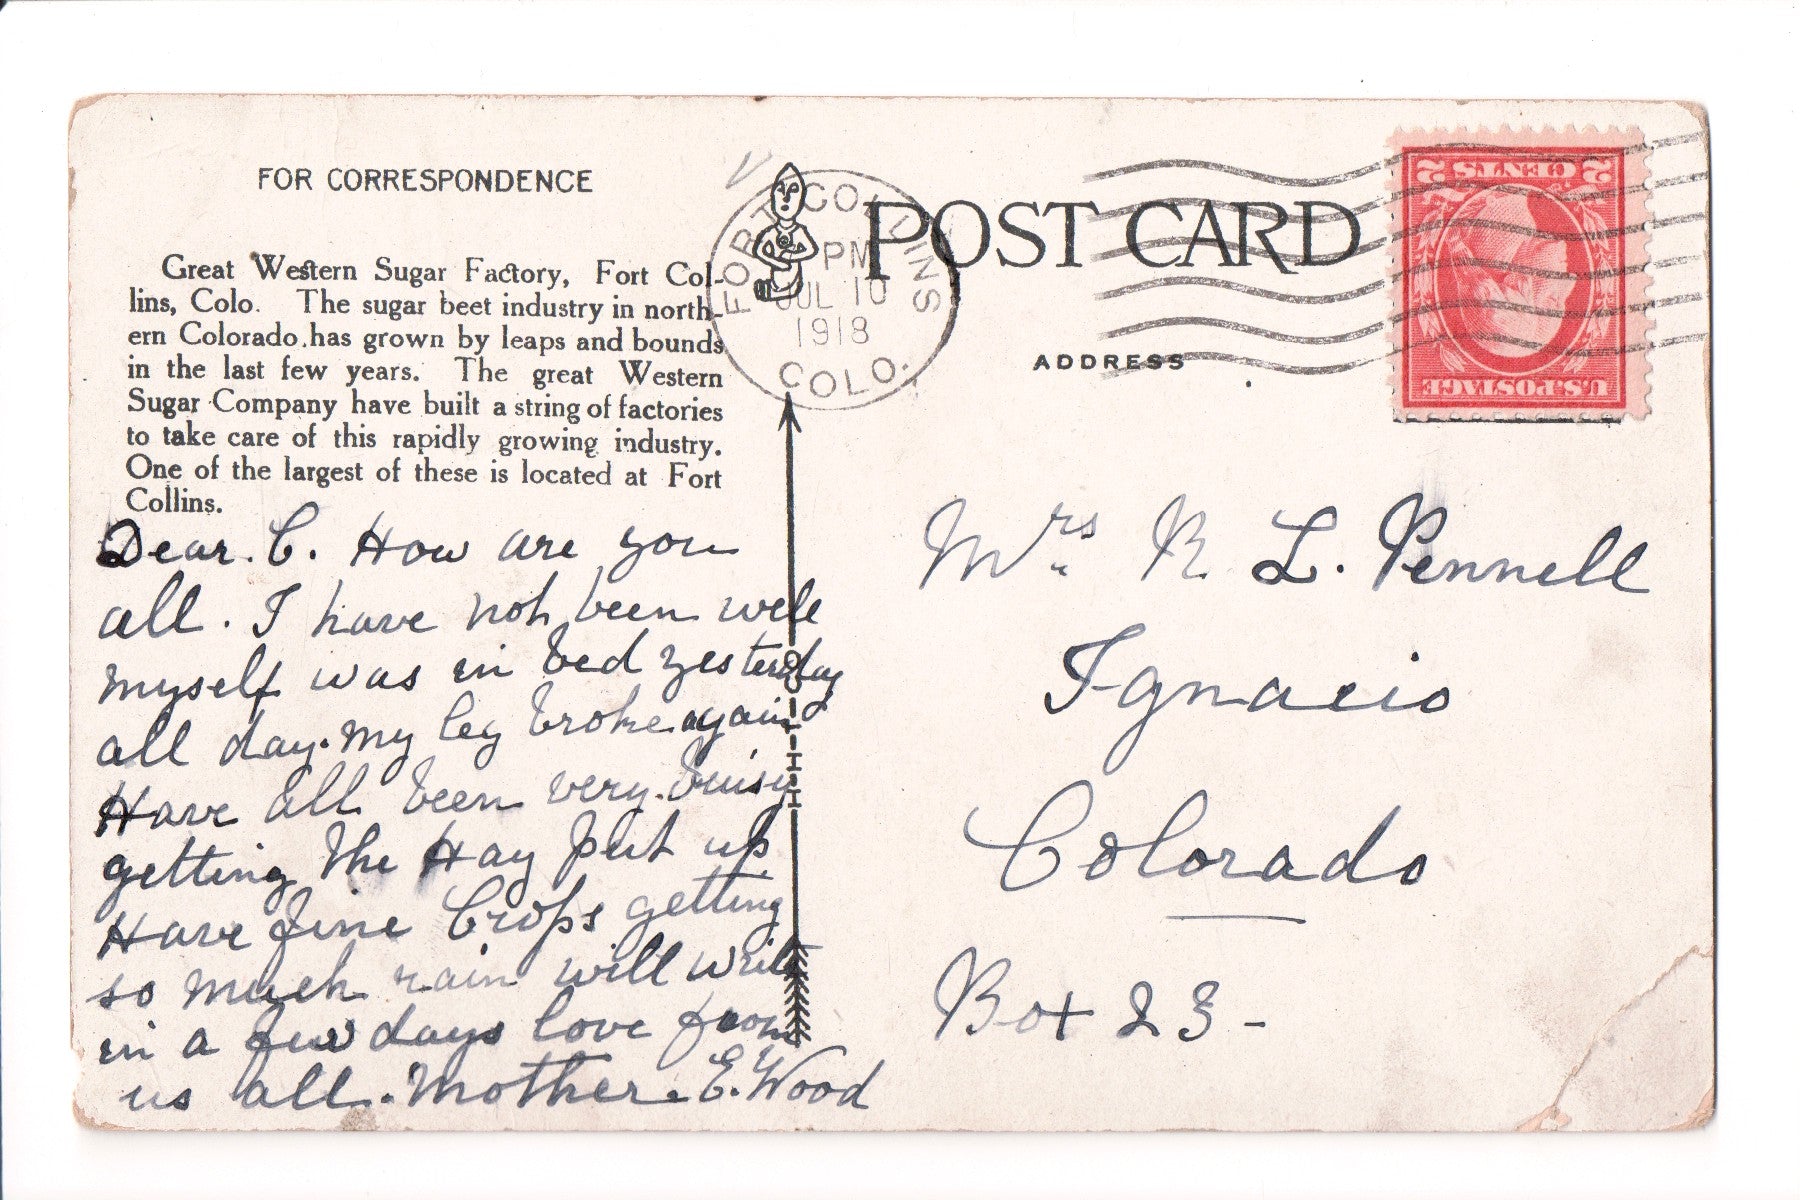 FOR CORRESPONDENCE
Great Western Sugar Factory, Fort Col-
lins, Colo. The sugar beet industry in north-
ern Colorado has grown by leaps and bounds
in the last few years. The great Western
Sugar Company have built a string of factories
to take care of this rapidly growing industry.
One of the largest of these is located at Fort
Collins.
Dear. C. How are you
all. I have not been well
myself was in bed yesterday
all day. my leg broke again
Have all been very buisy
getting the Hay put up
Have fine Crops getting
so much rain will write
in a few days love from
us all. Mother. E. Wood
FORT COLLINS
PM
JUL 10
1918
COLO.
POST CARD
ADDRESS
2 CENTS 2
U.S. POSTAGE
Mrs R. L. Pennell
Ignacio
Colorado
Box 23-